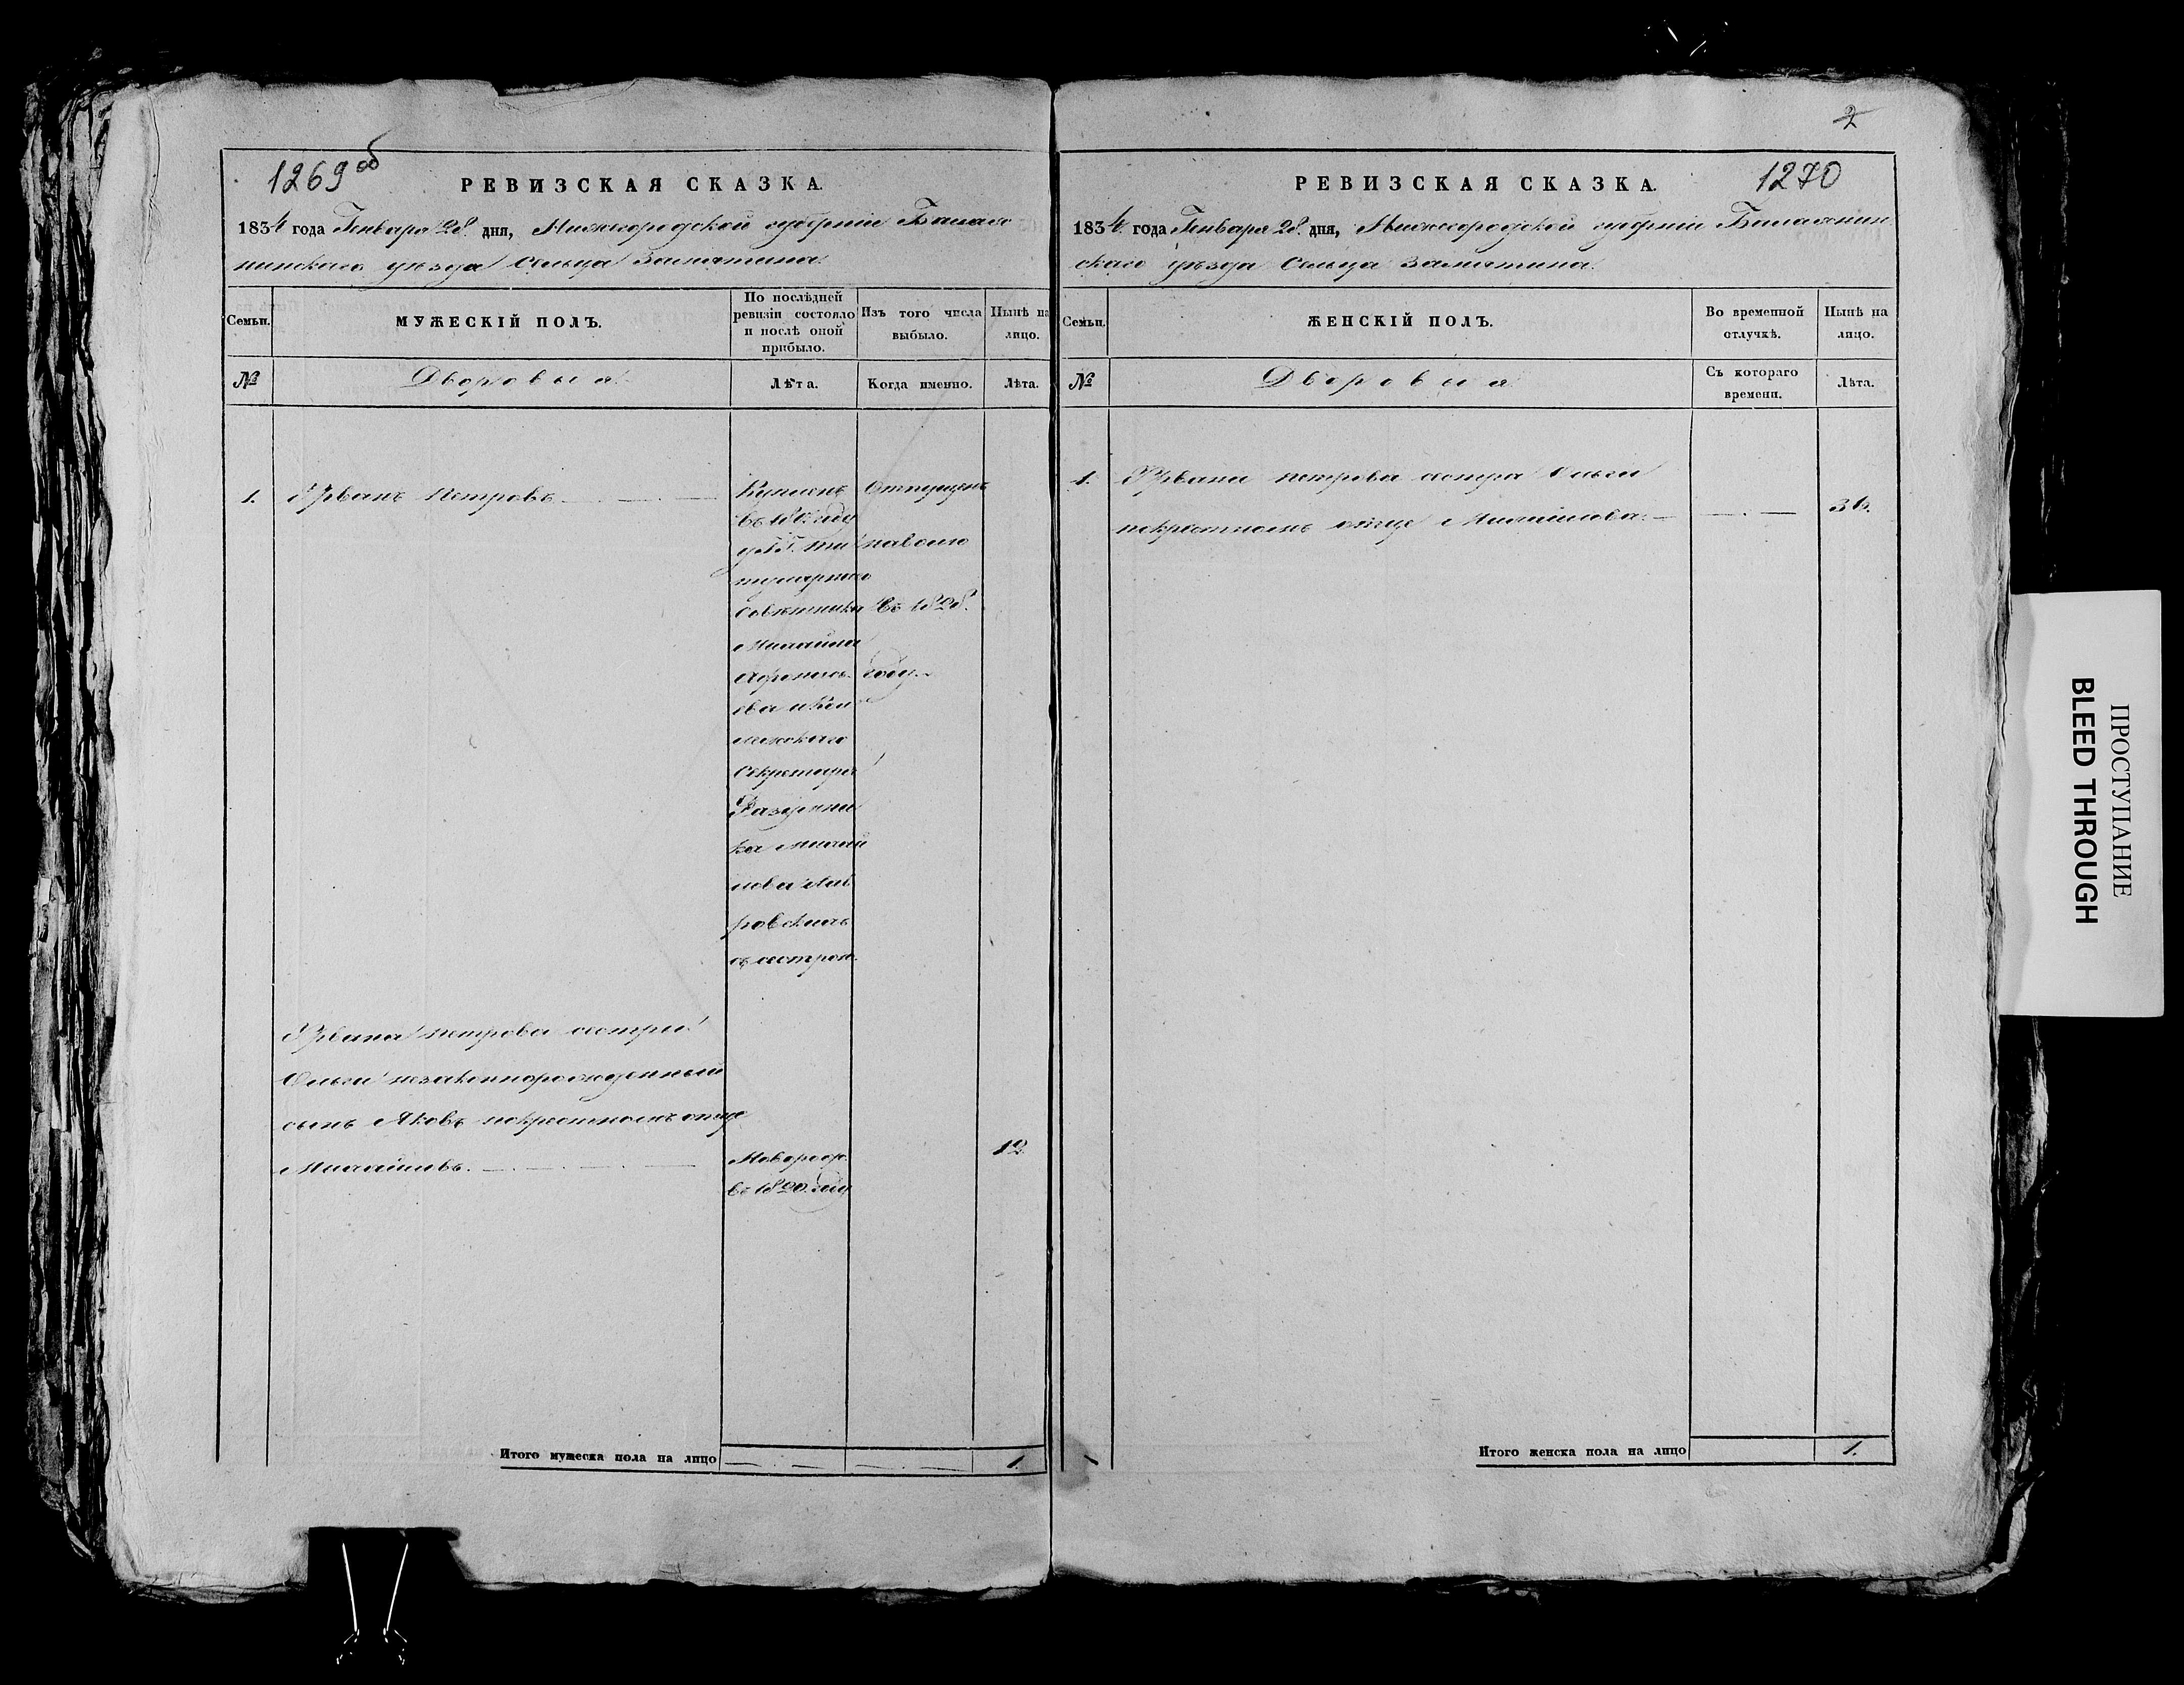 1269 об
РЕВИЗСКАЯ СКАЗКА.
1834 года Генваря 28. дня, Нижегородской губерніи Балах
нинскаго уѣзда сельца Замятина.
Семьи.
МУЖЕСКІЙ ПОЛЪ.
По послѣдней
ревизіи состояло
и послѣ оной
прибыло.
Изъ того числа
выбыло.
Нынѣ на
лицо.
№
Дворовыя.
Лѣта.
Когда именно.
Лѣта.
1.
Петровъ
Купленъ
Отпущенъ
году
ти
на волю
тулярнаго
совѣтника
въ 1828.
Михайла
году
секретаря
съ сестрою.
Петрова сестры
Ольги незаконнорожденный
сынъ Яковъ покрестномъ отцѣ
Михайловъ.
Новорож.
въ 1820. году
12
Итого мужеска пола на лицо
1.
2
1270
РЕВИЗСКАЯ СКАЗКА.
1834 года Генваря 28. дня, Нижегородской губерніи Балахнин
скаго уѣзда Сельца Замятина.
Семьи.
ЖЕНСКІЙ ПОЛЪ.
Во временной
отлучкѣ.
Нынѣ на
лицо.
№
Дворовыя
Съ котораго
времени.
Лѣта.
1.
Петрова сестра Ольга
покрестномъ отцѣ Михайлова.
36.
Итого женска пола на лицо
1.
ПРОСТУПАНИЕ
BLEED THROUGH